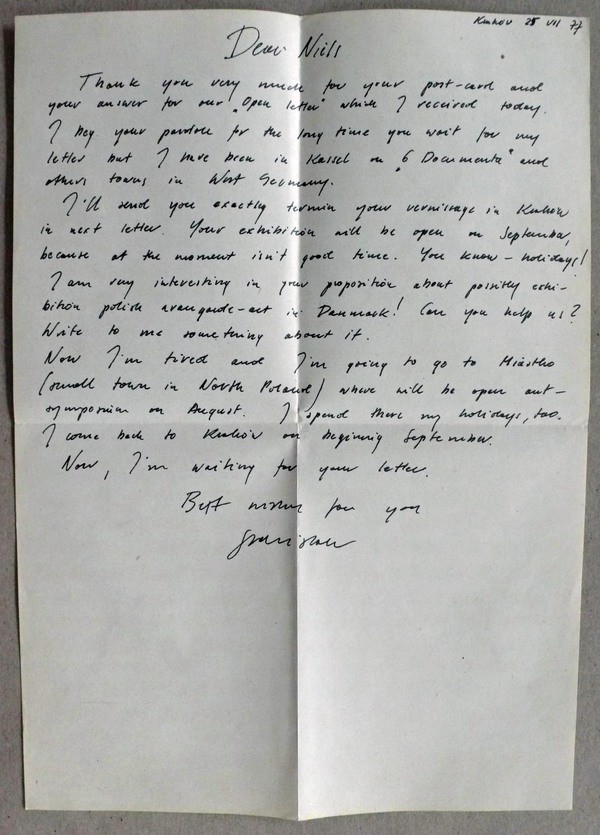 Kraków 25 VII 77
Dear Niels
Thank you very much for your post-card and
your answer for our "Open letter" which I received today.
I beg your pardon for the long time you wait for my
letter but I have been in Kassel on "6 Documenta" and
others towns in West Germany.
I'll send you exactly termin your vernissage in Kraków
in next letter. Your exhibition will be open on September,
because at the moment isn't good time. You know – holidays!
I am very interesting in your proposition about possibly exhi-
bition polish avangarde-art in Danmark! Can you help us?
Write to me something about it.
Now I'm tired and I'm going to go to Miastko
(small town in North Poland) where will be open art-
symposium on August. I spend there my holidays, too.
I come back to Kraków on beginnig September.
Now, I'm waiting for your letter.
Best wishes for you